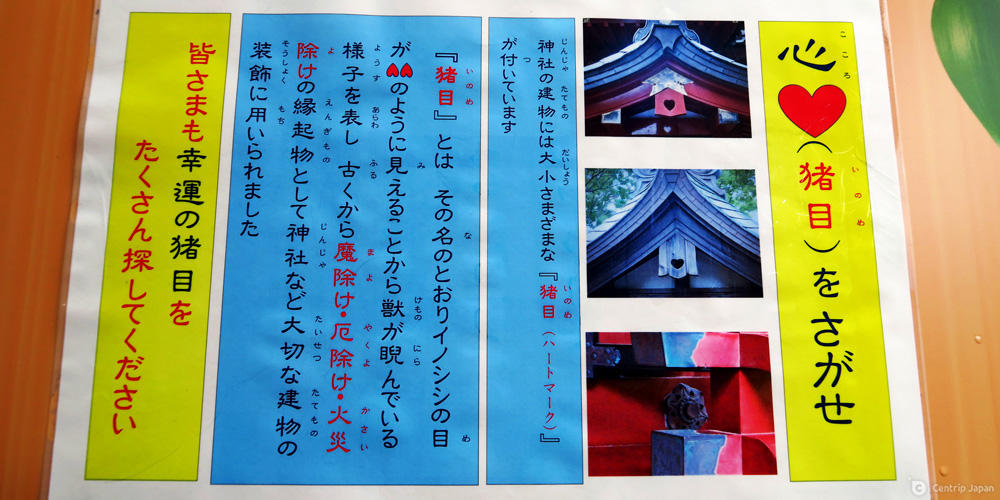 こころ いのめ
心♥（猪目）をさがせ
じんじゃ たてもの だいしょう いのめ
神社の建物には大小さまざまな『猪目（ハートマーク）』
つ
が付いています
いのめ な め
『猪目』とは その名のとおりイノシシの目
み けもの にら
が♥♥のように見えることから獣が睨んでいる
ようす あらわ ふる まよ やくよ かさい
様子を表し 古くから魔除け・厄除け・火災
よ えんぎもの じんじゃ たいせつ たてもの
除けの縁起物として神社など大切な建物の
そうしょく もち
装飾に用いられました
皆さまも幸運の猪目を
たくさん探してください
Centrip Japan